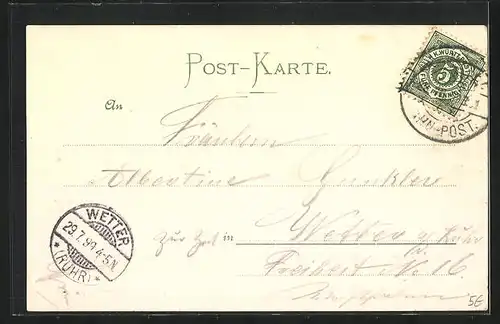 POST-KARTE.
K. WÜRTT. POST
5
FÜNF PFENNIG
HN-POST.
An
Fräulein
Albertine
WETTER
29.7.99.4-5N.
* (RUHR) *
Zur Zeit in Wetter a/Ruhr
Freiheit No 16
5E